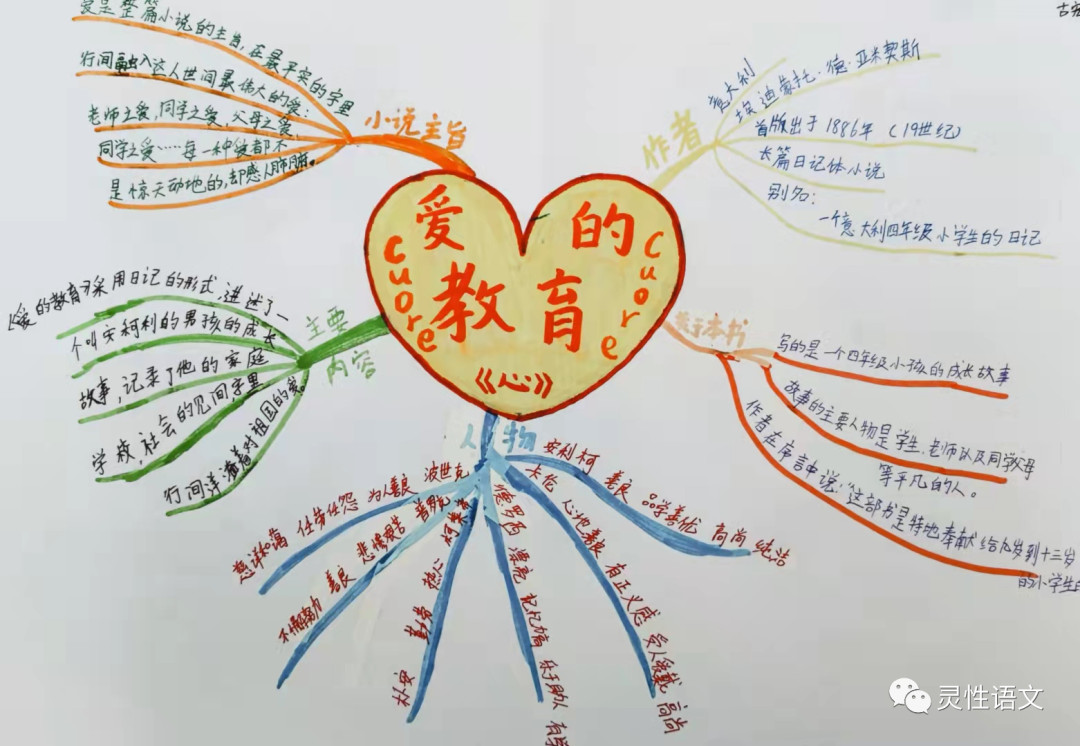 爱的教育
Cuore
Cuore
《心》
小说主旨
爱是整篇小说的主旨，在最平实的字里
行间融入这人世间最伟大的爱：
老师之爱，同学之爱，父母之爱、
同学之爱……每一种爱都不
是惊天动地的，却感人肺腑。
作者
意大利
埃迪蒙托·德·亚米契斯
首版出于1886年（19世纪）
长篇日记体小说
别名：
一个意大利四年级小学生的日记
主要
内容
《爱的教育》采用日记的形式，讲述了一
个叫安柯利的男孩的成长
故事，记录了他的家庭
学校，社会的见闻，字里
行间洋溢着对祖国的爱。
关于本书
写的是一个四年级小孩的成长故事
故事的主要人物是学生，老师以及同学父母
等平凡的人。
作者在序言中说：“这部书是特地奉献给九岁到十三岁
的小学生
人物
波世克 为人善良 任劳任怨 慈祥和蔼
善良 不懈努力
热心 勤劳 朴实
德罗西 漂亮 记忆力高 乐于助人
卡伦 心地善良 有正义感 受人爱戴 高尚
安利柯 善良 品学兼优 高尚 纯洁
古
灵性语文